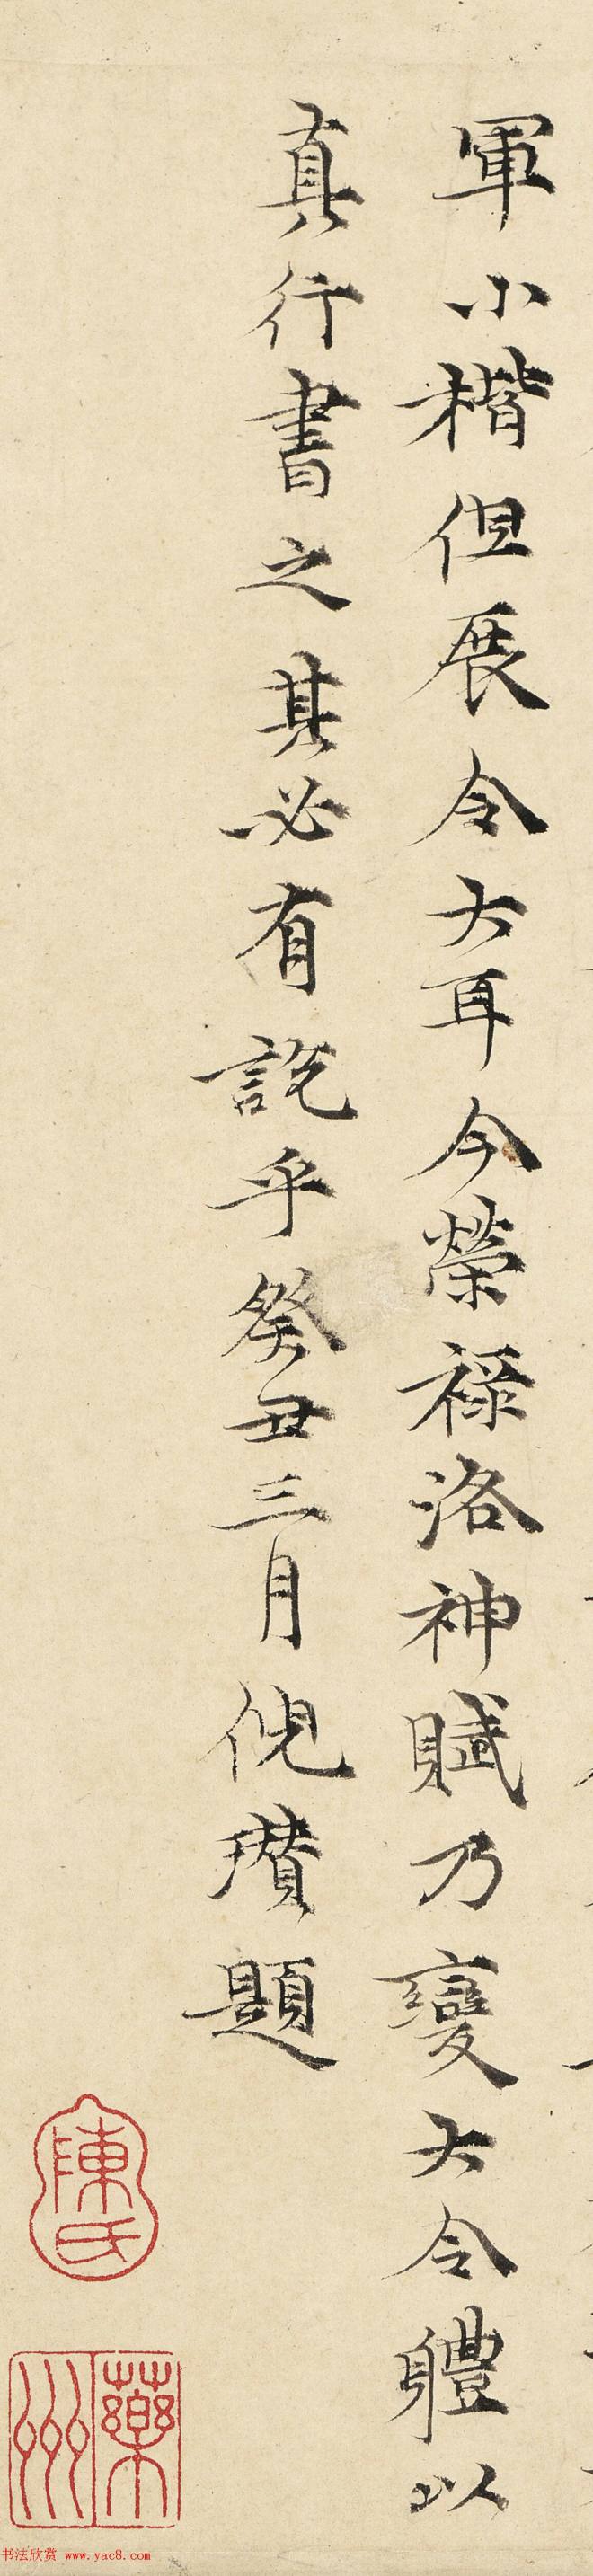 軍小楷但展令大耳今榮祿洛神賦乃變大令體以
真行書之其必有說乎癸丑三月倪瓚題
陳氏
藥洲
书法欣赏 www.yac8.com